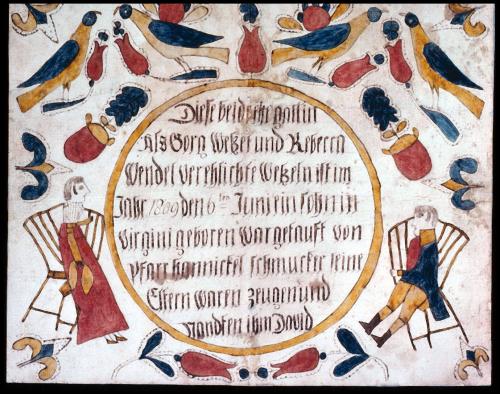 Diese beide ehe gattin
Als Gorg Wetzel und Rebecca
Wendel verehlichte Wetzeln ist im
Jahr 1809 den 6ten Juni ein sohn in
virgini geboren war getauft von
pfarr hannickel schmucker seine
Eltern waren zeugen und
nandten ihm David